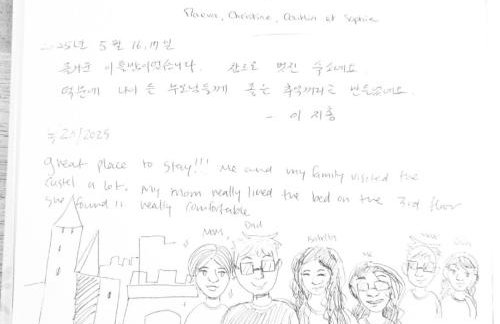 Florence, Christine, Quentin et Sophie
2025년 5월 16, 17일
즐거운 이틀밤이었습니다. 참으로 멋진 숙소네요
덕분에 나이 든 부모님들께 좋은 추억거리를 만들었네요.
- 이 지홍
5/20/2025
Great place to stay!!! Me and my family visited the
castel a lot. My mom really liked the bed on the 3rd floor
she found it really comfortable
Mom Dad Isabella Me